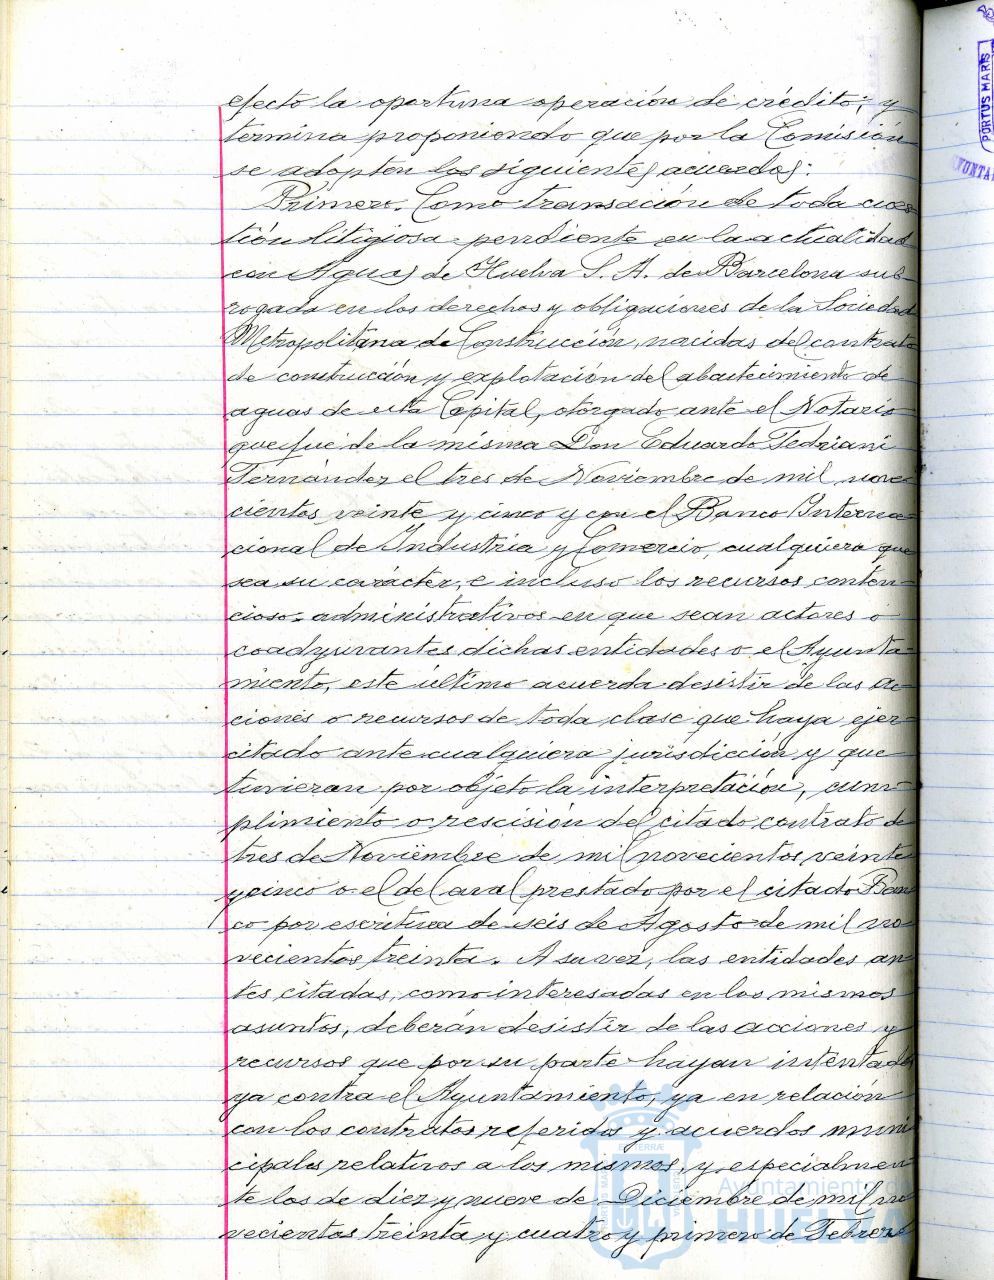 efecto la oportuna operación de crédito; y
termina proponiendo que por la Comisión
se adopten los siguientes acuerdos:
Primero. Como transación de toda cues-
tión litigiosa pendiente en la actualidad
con Aguas de Huelva S. A. de Barcelona sub-
rogada en los derechos y obligaciones de la Sociedad
Metropolitana de Construcción, nacidas del contrato
de construcción y explotación del abastecimiento de
aguas de esta Capital, otorgado ante el Notario
que fué de la misma Don Eduardo Fedriani
Fernández el tres de Noviembre de mil nove-
cientos veinte y cinco y con el Banco Interna-
cional de Industria y Comercio, cualquiera que
sea su carácter, e incluso los recursos conten-
cioso-administrativos en que sean actores o
coadyuvantes dichas entidades o el Ayunta-
miento, este último acuerda desistir de las ac-
ciones o recursos de toda clase que haya ejer-
citado ante cualquiera jurisdicción y que
tuvieran por objeto la interpretación, cum-
plimiento o rescisión del citado contrato de
tres de Noviembre de mil novecientos veinte
y cinco o el del aval prestado por el citado Ban-
co por escritura de seis de Agosto de mil no-
vecientos treinta. A su vez, las entidades an-
tes citadas, como interesadas en los mismos
asuntos, deberán desistir de las acciones y
recursos que por su parte hayan intentado
ya contra el Ayuntamiento, ya en relación
con los contratos referidos y acuerdos muni-
cipales relativos a los mismos, y especialmen-
te los de diez y nueve de Diciembre de mil no-
vecientos treinta y cuatro y primero de Febrero
PORTUS MARIS
Ayuntamiento de
HUELVA